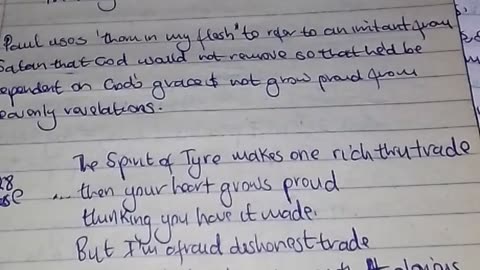 Paul uses 'thorn in my flesh' to refer to an irritant from
Satan that God would not remove so that he'd be
ependent on God's grace & not grow proud from
eavenly revelations.
The Spirit of Tyre makes one rich thru trade
28 ... then your heart grows proud
thinking you have it made.
But I'm afraid dishonest trade